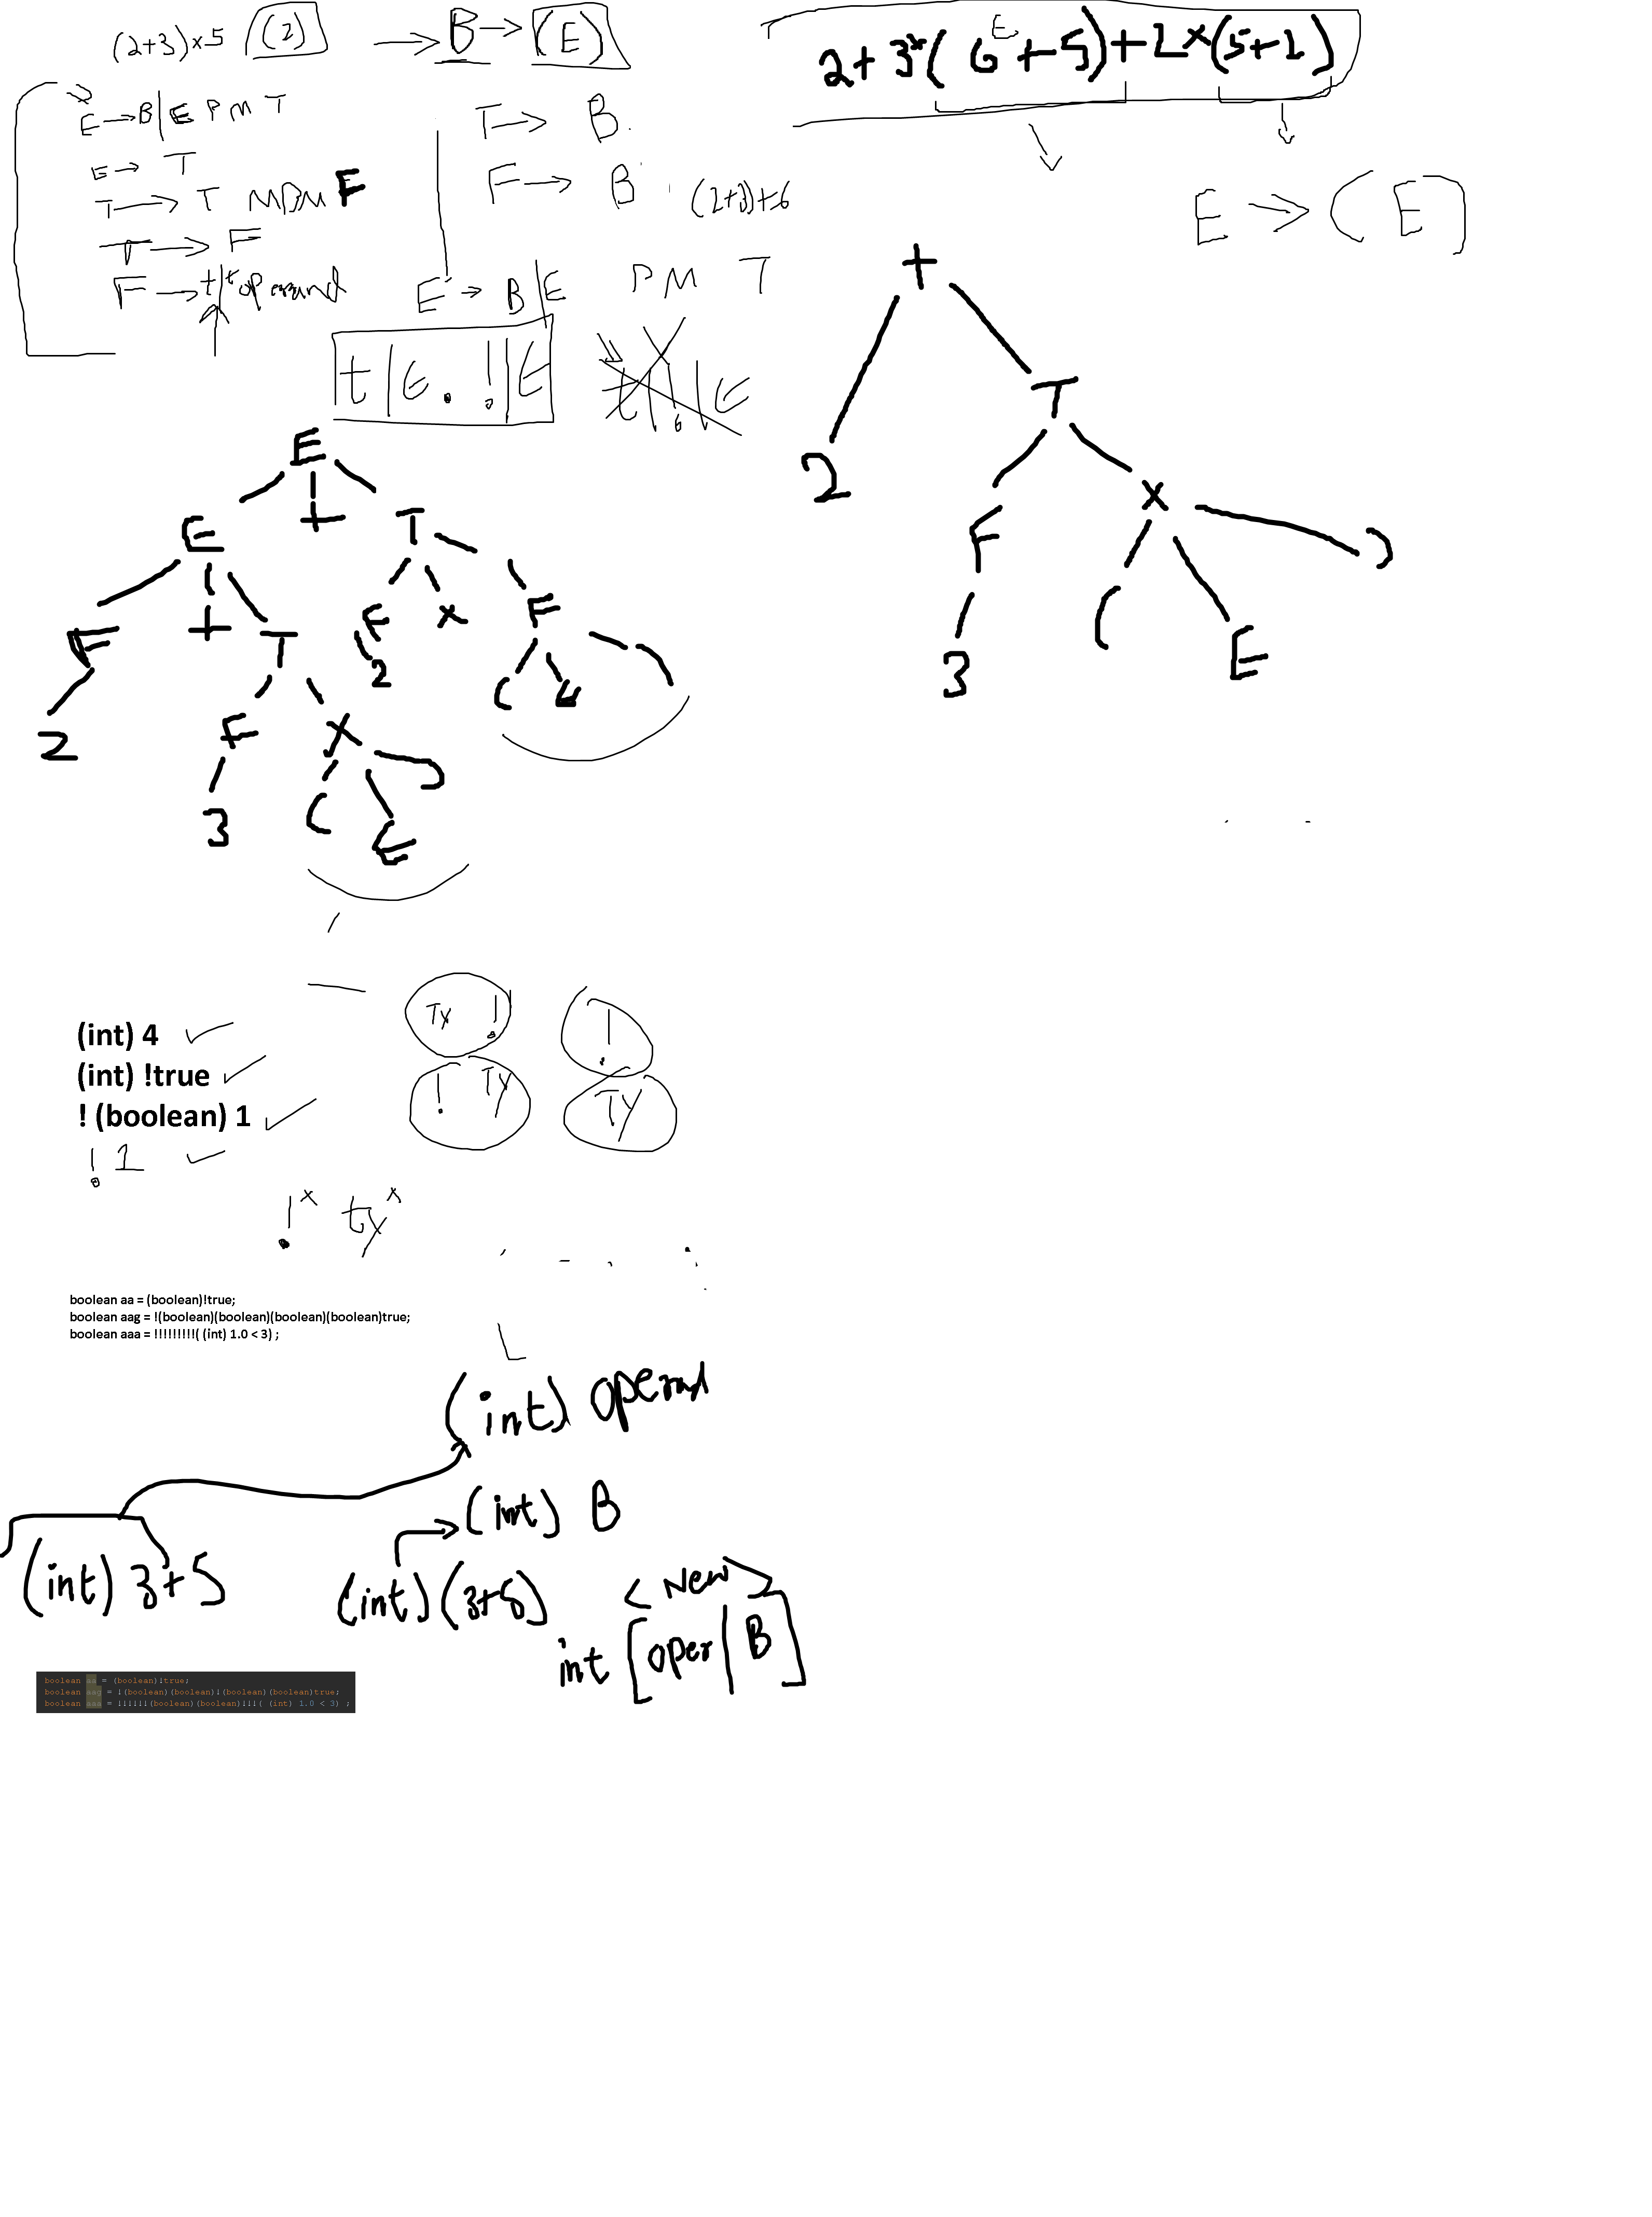 (2+3)×5 (2) → B → (E)
2+3×(6+5)+2×(5+1)
E
E → B | E P M T
E → T
T → T MDM F
T → F
F → t | t operand
T → B
F → B
(2+3)+6
E → (E)
E → B | E PM T
t | E . ! | E
E
E + T
F + T F × F
2 F X 2 ( )
3 ( E )
+
2 T
F X
3 ( E )
(int) 4
(int) !true
! (boolean) 1
! 1
Ty !
! Ty
!
Ty
!* ty*
boolean aa = (boolean)!true;
boolean aag = !(boolean)(boolean)(boolean)(boolean)true;
boolean aaa = !!!!!!!!!( (int) 1.0 < 3) ;
(int) operand
(int) B
(int) 3+5
(int)(3+5)
< New >
int [oper | B]
boolean aa = (boolean)!true;
boolean aag = !(boolean)(boolean)!(boolean)(boolean)true;
boolean aaa = !!!!!!(boolean)(boolean)!!!( (int) 1.0 < 3) ;